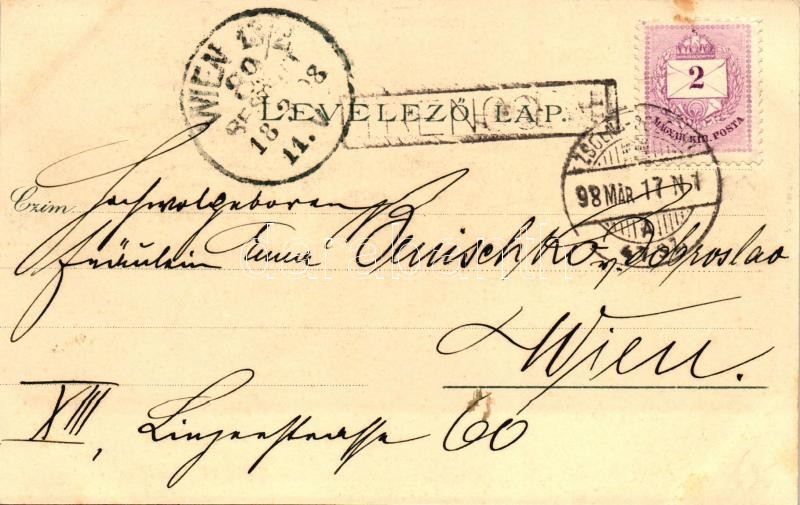 WIEN 13/2
18.3.98
11.V
LEVELEZŐ LAP.
TRENCS
2
MAGY. KIR. POSTA
ZSOLNA
98 MÁR. 17 N 1
A
Czim
Hochwolgeboren
Fräulein Emma Benischko v. Dobroslav
Wien.
XIII, Linzerstrasse 60